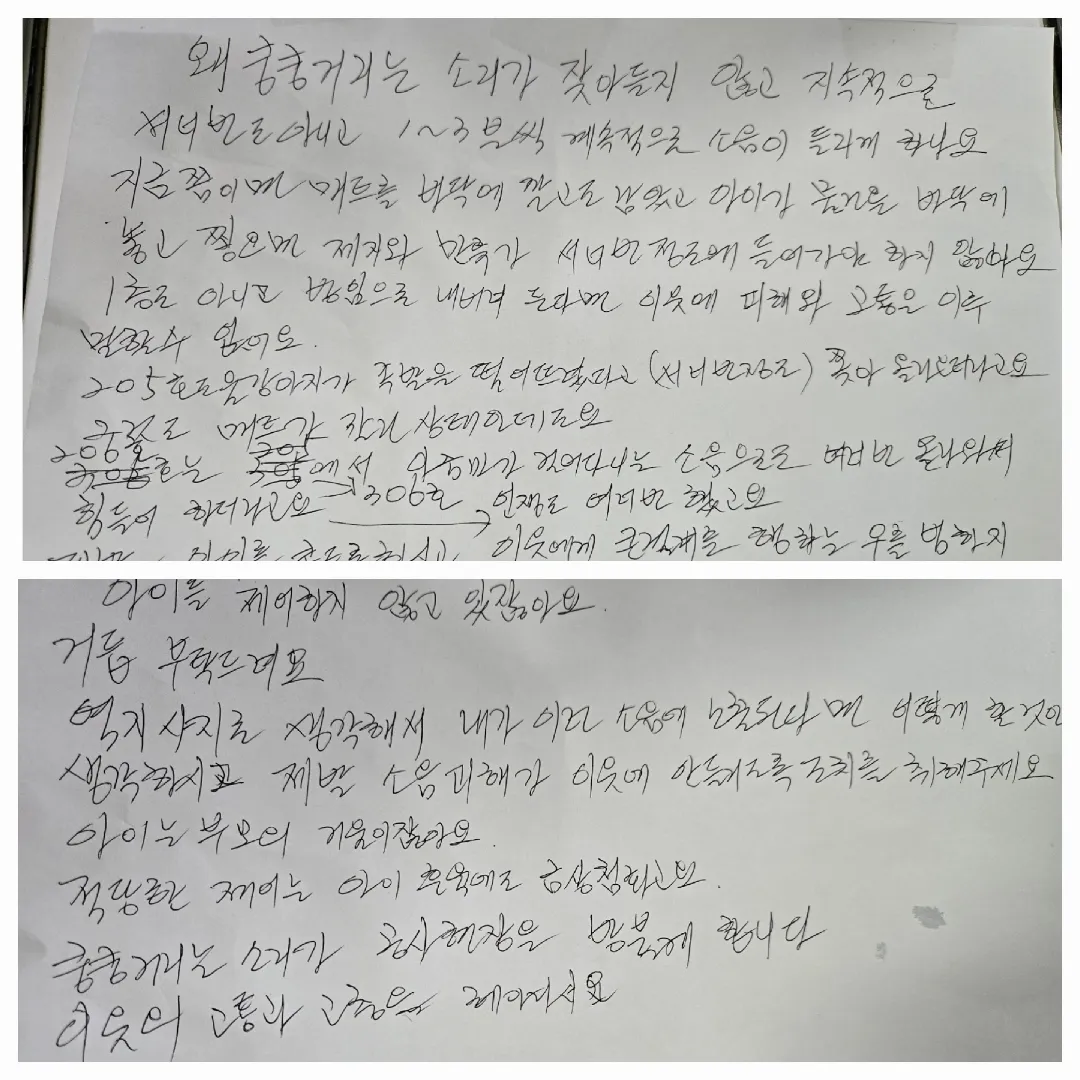 왜 쿵쿵거리는 소리가 잦아들지 않고 지속적으로
서너번도 아니고 1~3분씩 계속적으로 소음이 들리게 하나요
지금쯤이면 매트를 바닥에 깔고도 남았고 아이가 물건을 바닥에
놓고 찧으면 제지와 만류가 서너번정도에 들어가야 하지 않아요
1층도 아니고 방임으로 내버려 둔다면 이웃에 피해와 고통은 이루
말할수 없어요.
205호도 옹강아지가 족발을 떨어뜨렸다고 (서너번정도) 쫓아 올라오더라고요
그것도 매트가 깔린 상태인데도요
206호는 에서 아줌마가 걸어다니는 소음으로도 여러번 올라와서
힘들어 하더라고요 → 306호 언쟁도 여러번 했고요
이웃에게 큰 행하는 우를 범하지
아이를 제어하지 않고 있잖아요.
거듭 부탁드려요
역지사지로 생각해서 내가 이런 소음에 노출된다면 어떻게 할것인
생각하시고 제발 소음피해가 이웃에 안들리도록 조치를 취해주세요
아이는 부모의 거울이잖아요.
적당한 제어는 아이 훈육에도 금상첨화고요.
쿵쿵거리는 소리가 공사현장을 방불케 합니다
이웃의 고통과 고충을 헤아리서요